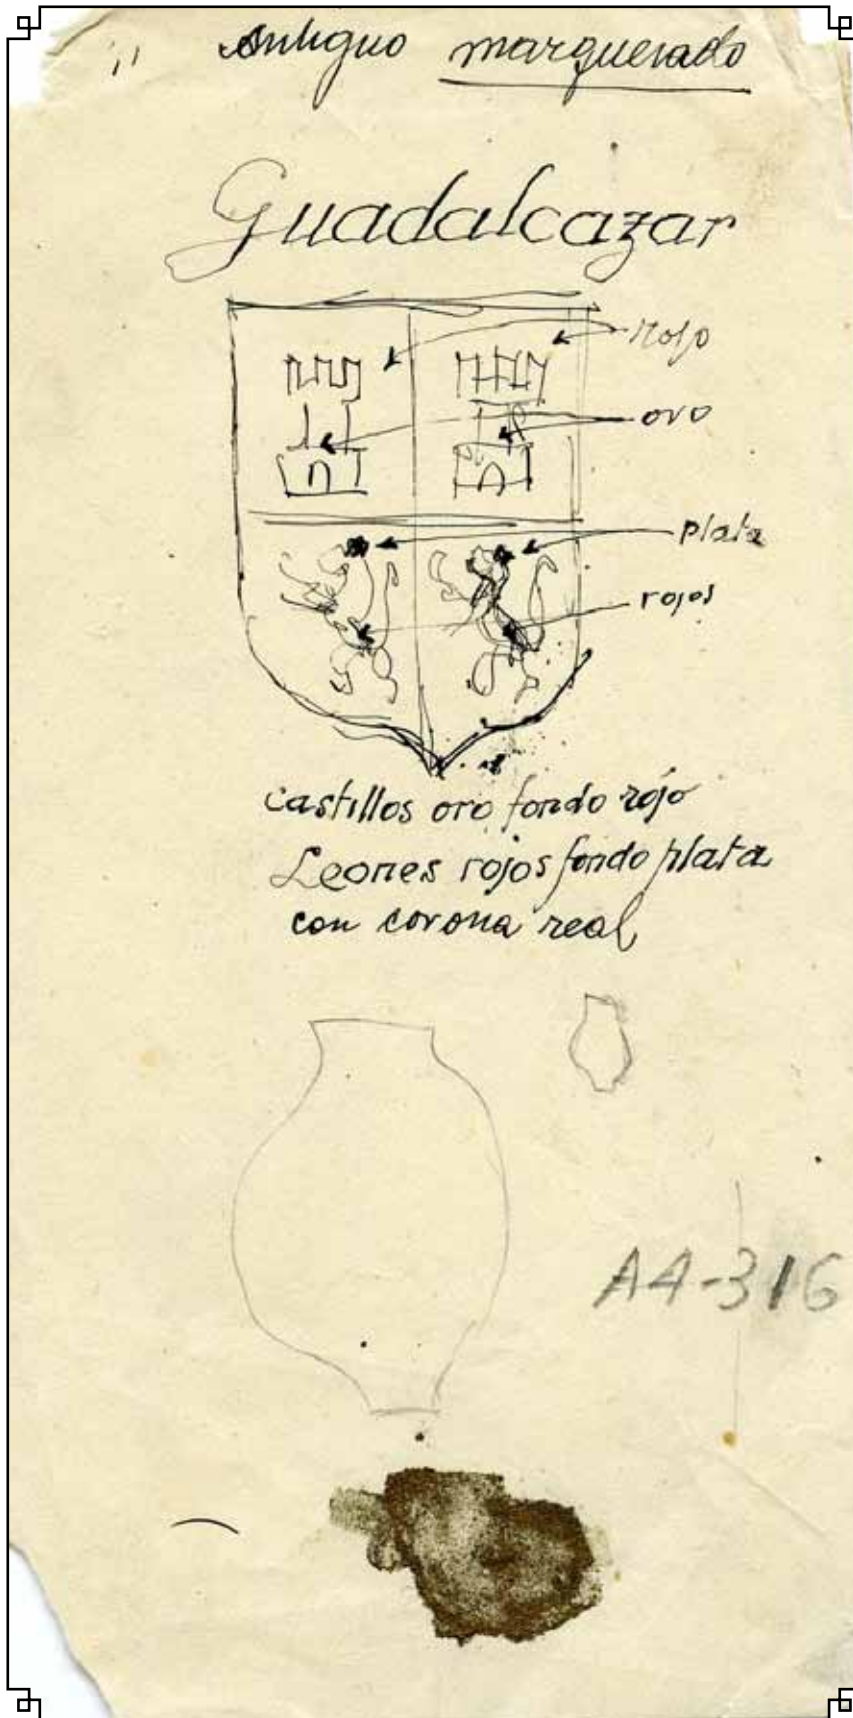 Antiguo marquesado
Guadalcazar
rojo
oro
plata
rojos
castillos oro fondo rojo
Leones rojos fondo plata
con corona real
A4-316